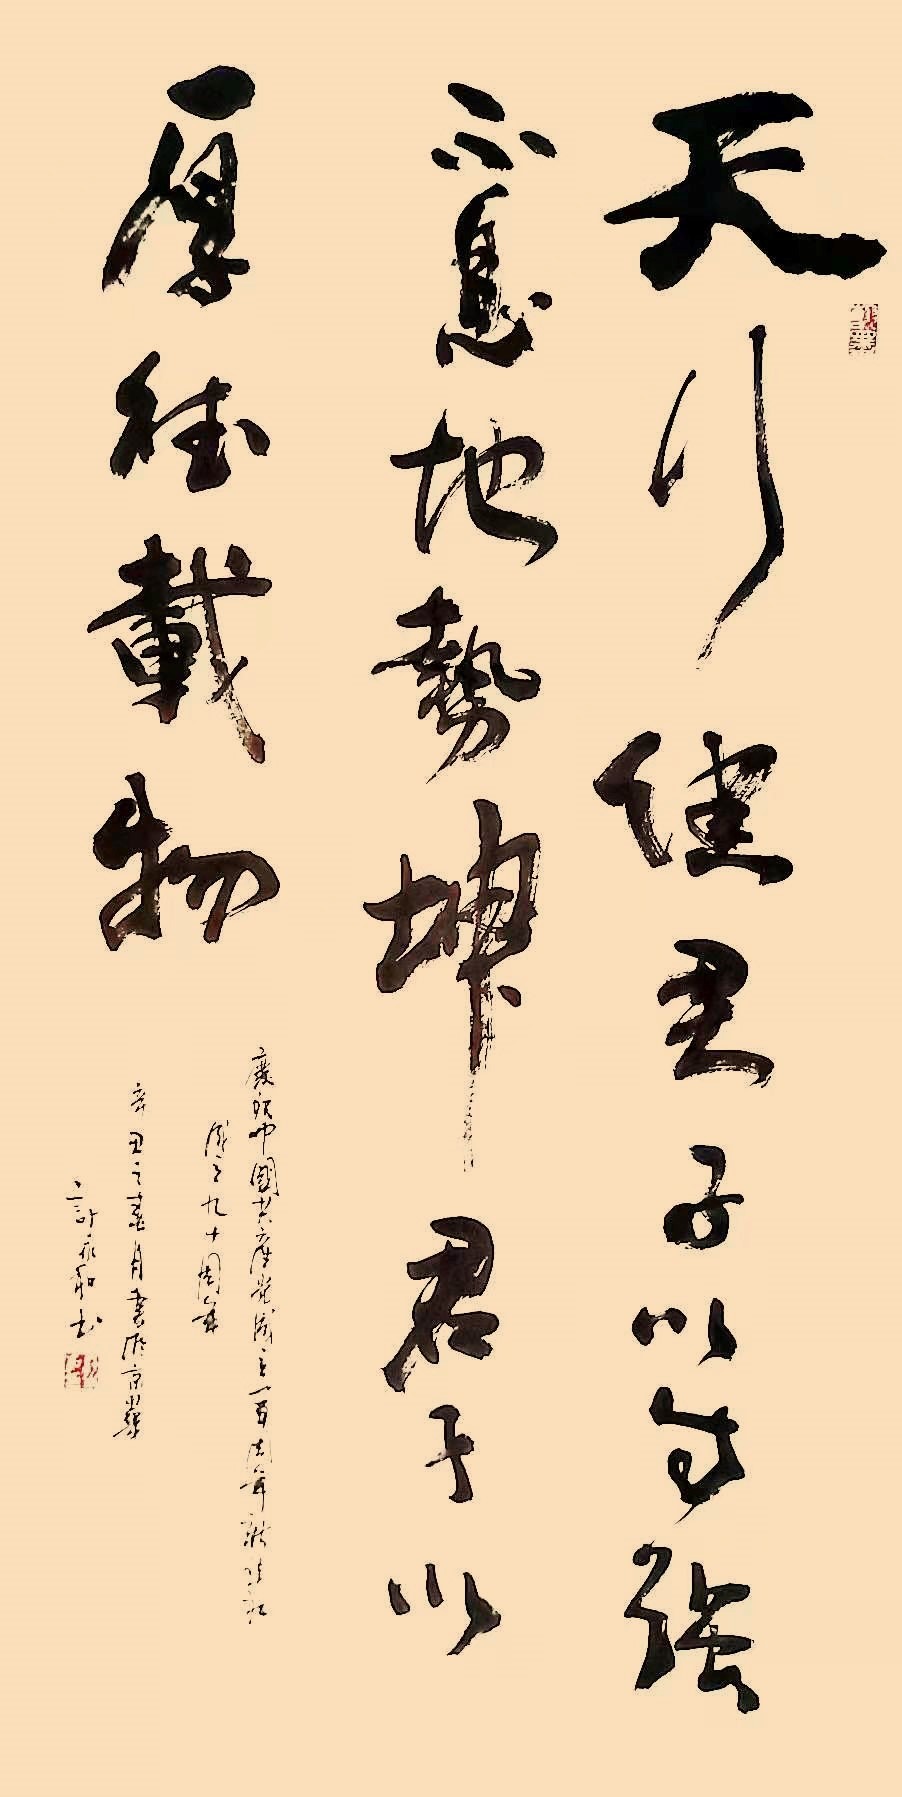 天行健君子以自強
不息地勢坤君子以
厚德載物
慶祝中國共產党成立一百周年新华社
成立九十周年
辛丑之春月書於京華
許永和书